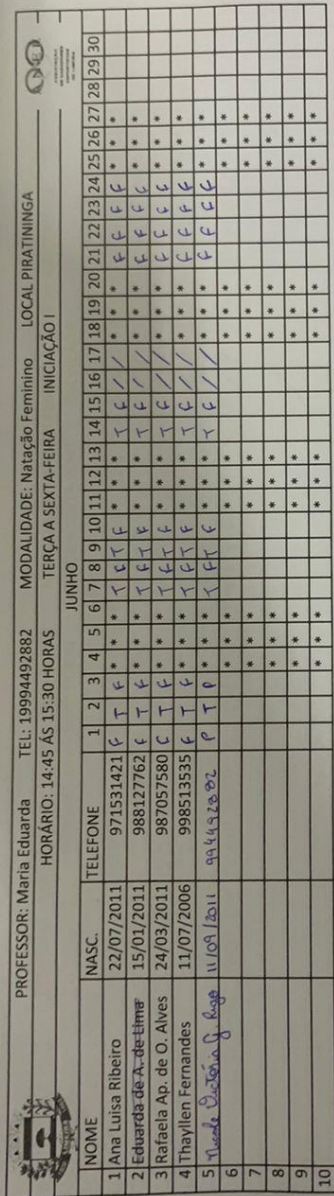 PROFESSOR: Maria Eduarda TEL: 19994492882 MODALIDADE: Natação Feminino LOCAL PIRATININGA
HORÁRIO: 14:45 ÁS 15:30 HORAS TERÇA A SEXTA-FEIRA INICIAÇÃO I
JUNHO
NOME NASC. TELEFONE 1 2 3 4 5 6 7 8 9 10 11 12 13 14 15 16 17 18 19 20 21 22 23 24 25 26 27 28 29 30
1 Ana Luisa Ribeiro 22/07/2011 971531421 F T F * * * T F T F * * * T F / / * * * F F F F * * *
2 Eduarda de A. de Lima 15/01/2011 988127762 F T F * * * T F T F * * * T F / / * * * F F F F * * *
3 Rafaela Ap. de O. Alves 24/03/2011 987057580 C T F * * * T F T F * * * T F / / * * * F F F F * * *
4 Thayllen Fernandes 11/07/2006 998513535 F T F * * * T F T F * * * T F / / * * * F F F F * * *
5 Nicole Victória G. Rigo 11/09/2011 994492882 P T P * * * T F T F * * * T F / / * * * F F F F * * *
6 * * * * * * * * * * * *
7 * * * * * * * * * * * *
8 * * * * * * * * * * * *
9 * * * * * * * * * * * *
10 * * * * * * * * * * * *